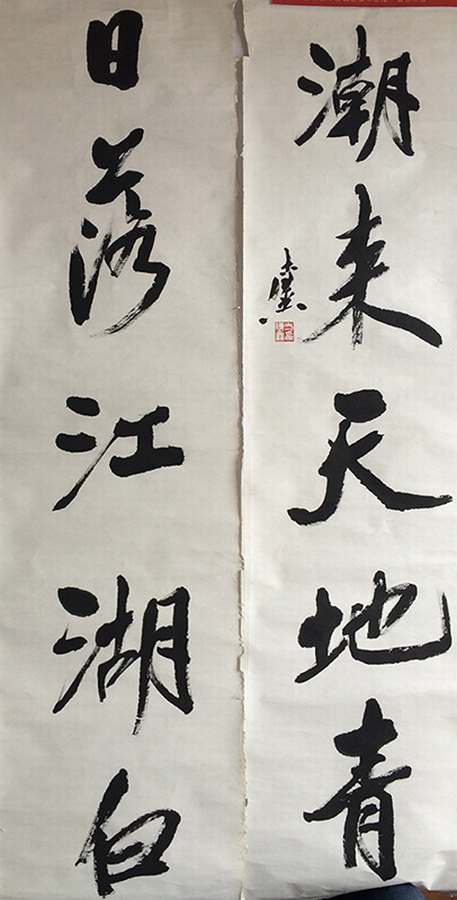 日落江湖白
潮来天地青